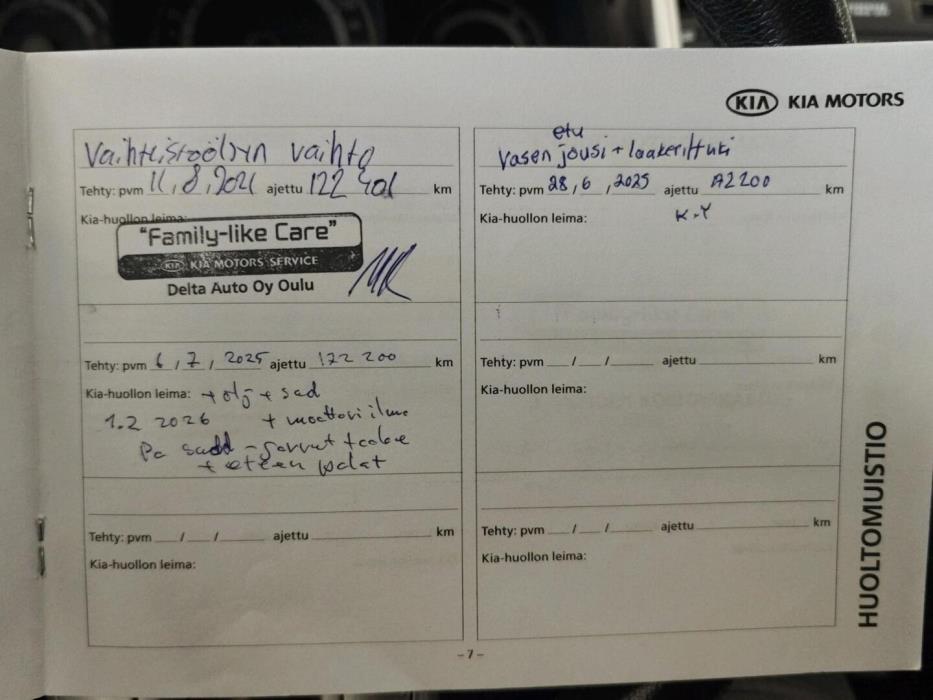 KIA KIA MOTORS
Vaihteistoöljyn vaihto
Tehty: pvm 11, 8, 2021 ajettu 122 401 km
Kia-huollon leima:
"Family-like Care"
KIA KIA MOTORS SERVICE
Delta Auto Oy Oulu
Tehty: pvm 6, 7, 2025 ajettu 172 200 km
Kia-huollon leima: + ölj + sad
1.2 2026 + moottori ilma
Pa
+ eteen palat
Tehty: pvm / / ajettu km
Kia-huollon leima:
etu
Vasen jousi + laakerittuki
Tehty: pvm 28, 6, 2025 ajettu 172200 km
Kia-huollon leima: K.Y
Tehty: pvm / / ajettu km
Kia-huollon leima:
Tehty: pvm / / ajettu km
Kia-huollon leima:
HUOLTOMUISTIO
-7-